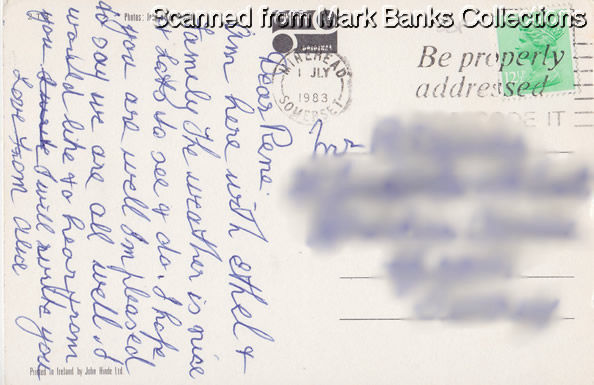 Scanned from Mark Banks Collections
Photos:
ORIGINAL
MINEHEAD
1 JLY
1983
SOMERSET
Be properly
addressed
CODE IT
12½
Dear Rene
I'm here with Ethel &
family The weather is nice
& lots to see & do. I hope
you are well I'm pleased
to say we are all well. I
would like to hear from
you I will write you
Love from Alice
Printed in Ireland by John Hinde Ltd.